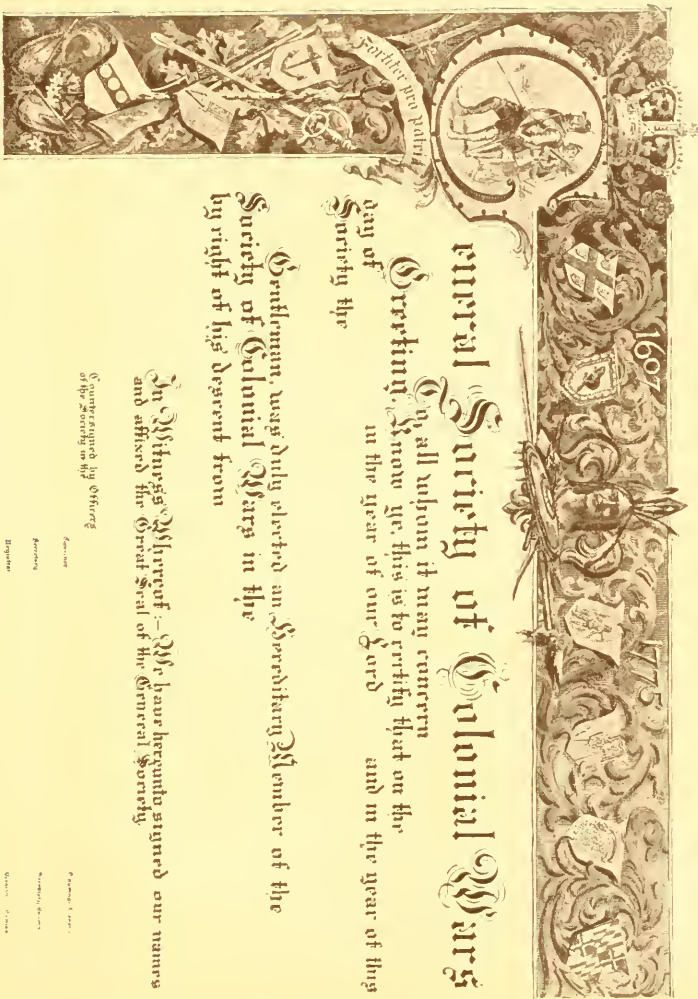 1607 1775
Fortiter pro patria
eneral Society of Colonial Wars
To all whom it may concern
Greeting, Know ye this is to certify that on the
day of in the year of our Lord and in the year of this
Society the
Gentleman, was duly elected an Hereditary Member of the
Society of Colonial Wars in the
by right of his descent from
In Witness Whereof :– We have hereunto signed our names
and affixed the Great Seal of the General Society.
Countersigned by Officers
of the Society in the
Governor
Secretary
Registrar